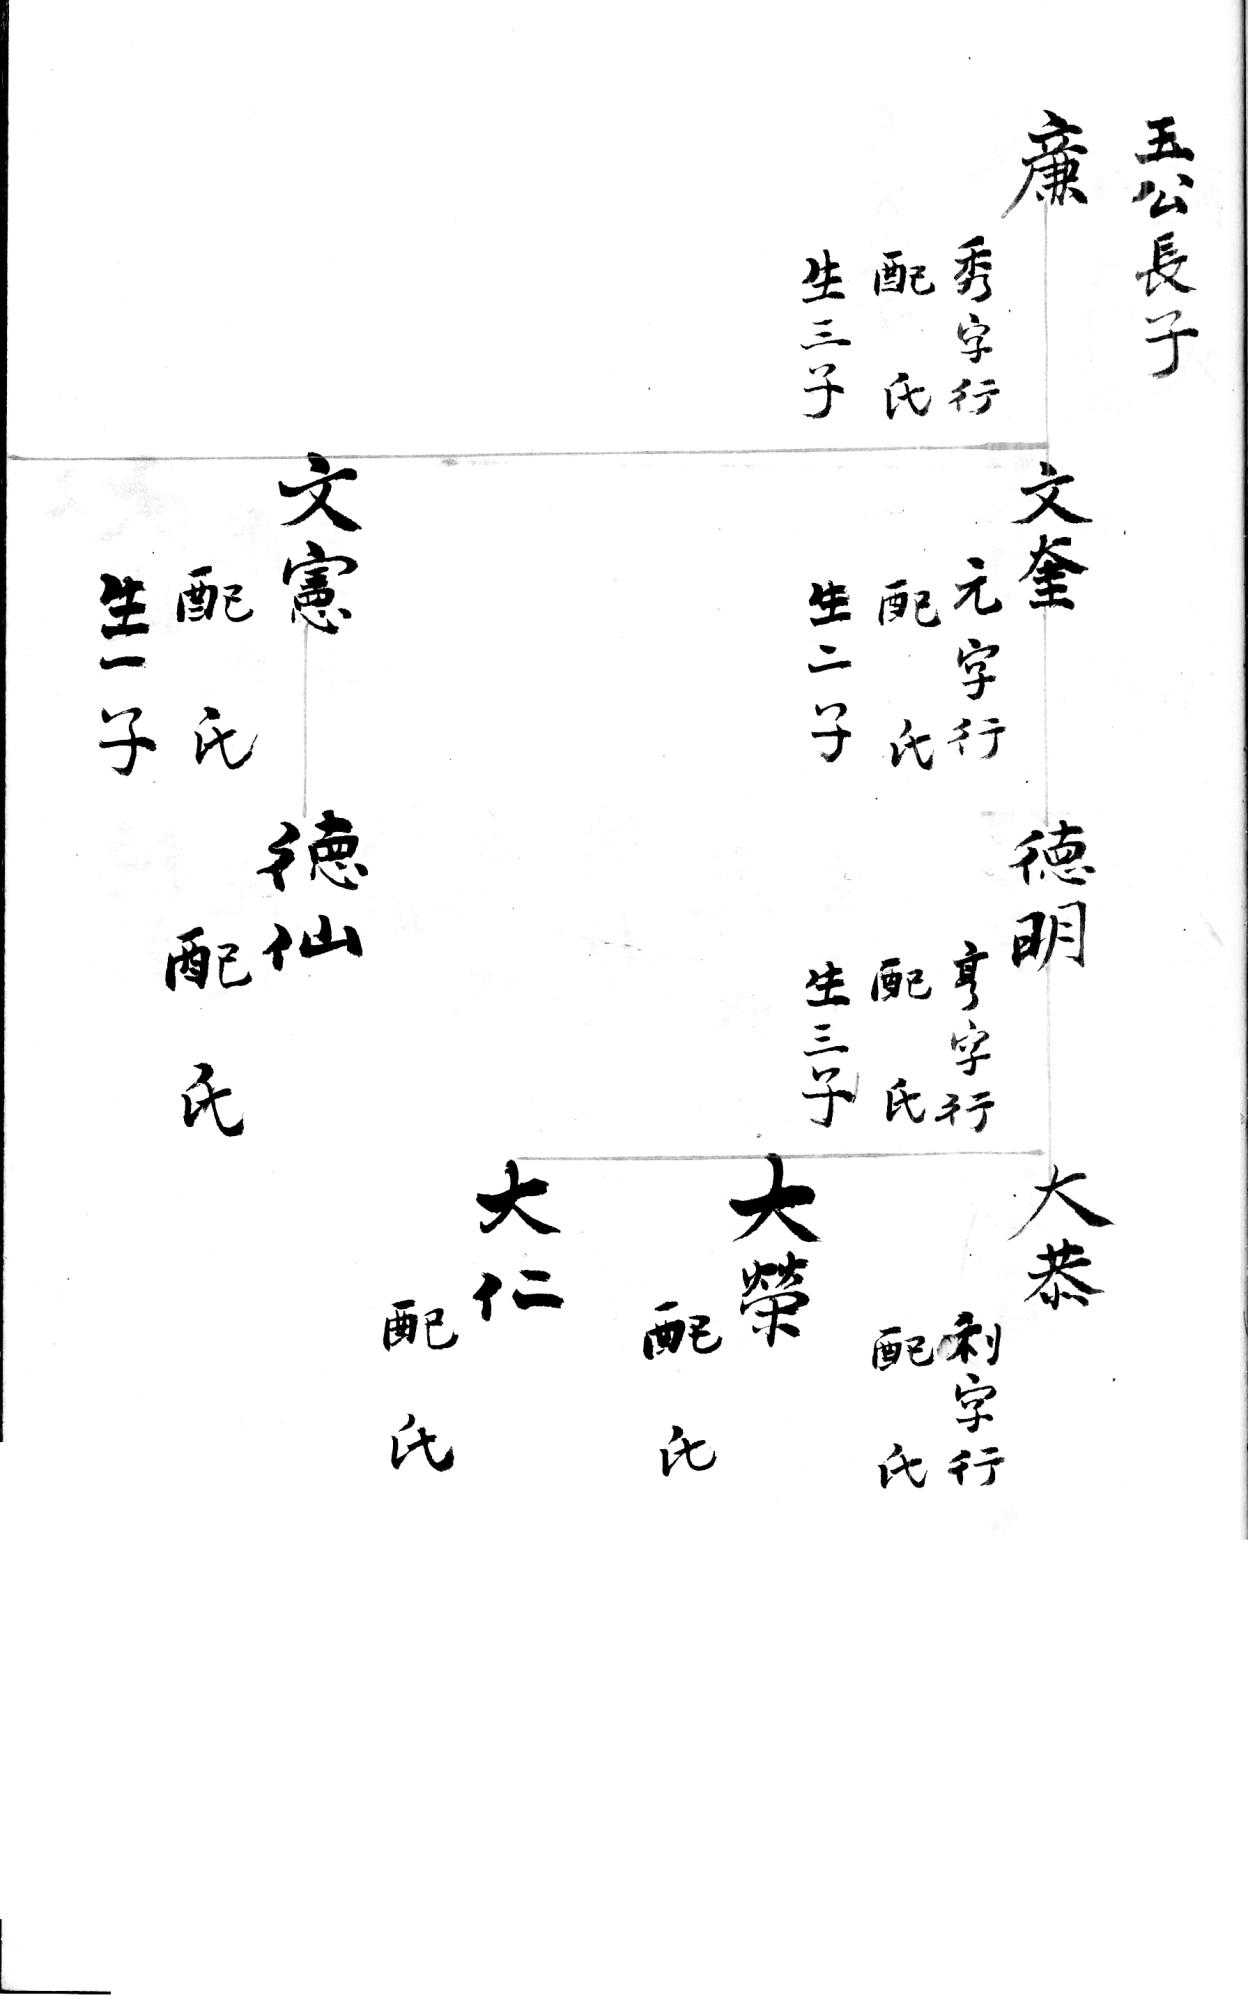 玉公長子
廉
秀字行
配 氏
生三子
文奎
元字行
配 氏
生二子
文憲
配 氏
生一子
德明
亨字行
配 氏
生三子
德仙
配 氏
大恭
利字行
配 氏
大榮
配 氏
大仁
配 氏